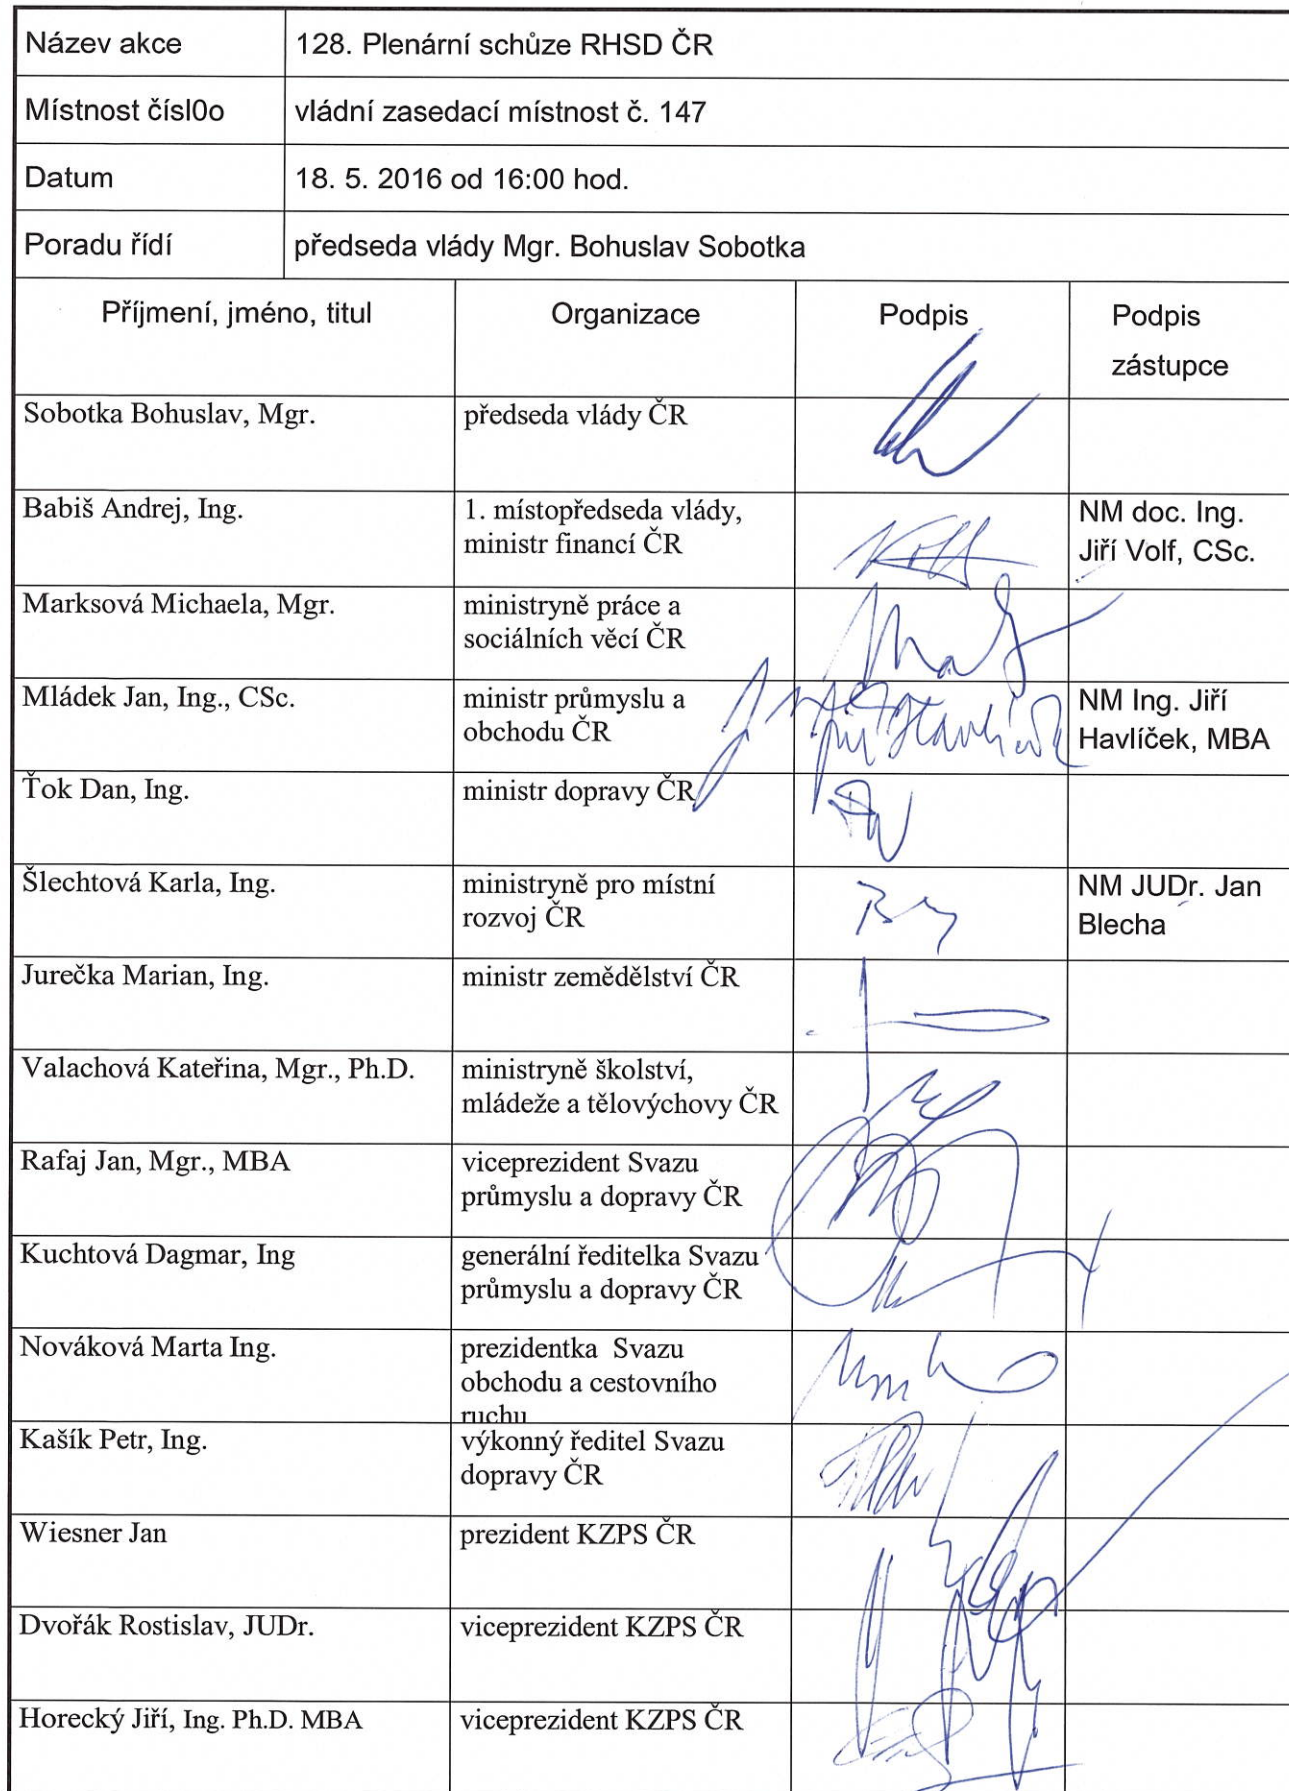 Název akce
128. Plenární schůze RHSD ČR
Místnost čísl0o
vládní zasedací místnost č. 147
Datum
18. 5. 2016 od 16:00 hod.
Poradu řídí
předseda vlády Mgr. Bohuslav Sobotka
Příjmení, jméno, titul
Organizace
Podpis
Podpis
zástupce
Sobotka Bohuslav, Mgr.
předseda vlády ČR
Babiš Andrej, Ing.
1. místopředseda vlády,
ministr financí ČR
NM doc. Ing.
Jiří Volf, CSc.
Marksová Michaela, Mgr.
ministryně práce a
sociálních věcí ČR
Mládek Jan, Ing., CSc.
ministr průmyslu a
obchodu ČR
NM Ing. Jiří
Havlíček, MBA
Ťok Dan, Ing.
ministr dopravy ČR
Šlechtová Karla, Ing.
ministryně pro místní
rozvoj ČR
NM JUDr. Jan
Blecha
Jurečka Marian, Ing.
ministr zemědělství ČR
Valachová Kateřina, Mgr., Ph.D.
ministryně školství,
mládeže a tělovýchovy ČR
Rafaj Jan, Mgr., MBA
viceprezident Svazu
průmyslu a dopravy ČR
Kuchtová Dagmar, Ing
generální ředitelka Svazu
průmyslu a dopravy ČR
Nováková Marta Ing.
prezidentka Svazu
obchodu a cestovního
ruchu
Kašík Petr, Ing.
výkonný ředitel Svazu
dopravy ČR
Wiesner Jan
prezident KZPS ČR
Dvořák Rostislav, JUDr.
viceprezident KZPS ČR
Horecký Jiří, Ing. Ph.D. MBA
viceprezident KZPS ČR